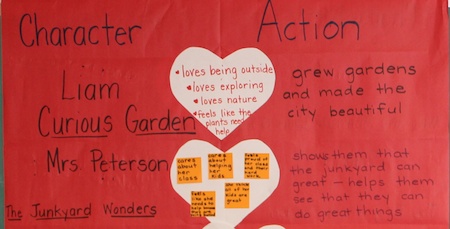 Character
Action
Liam
Curious Garden
• loves being outside
• loves exploring
• loves nature
• feels like the
plants need
help
grew gardens
and made the
city beautiful
Mrs. Peterson
The Junkyard Wonders
cares
about
her
class
cares
about
helping
her
kids
feels
proud of
feels
like she
needs to
kids are
great
shows them that
the junkyard can
great – helps them
see that they can
do great things